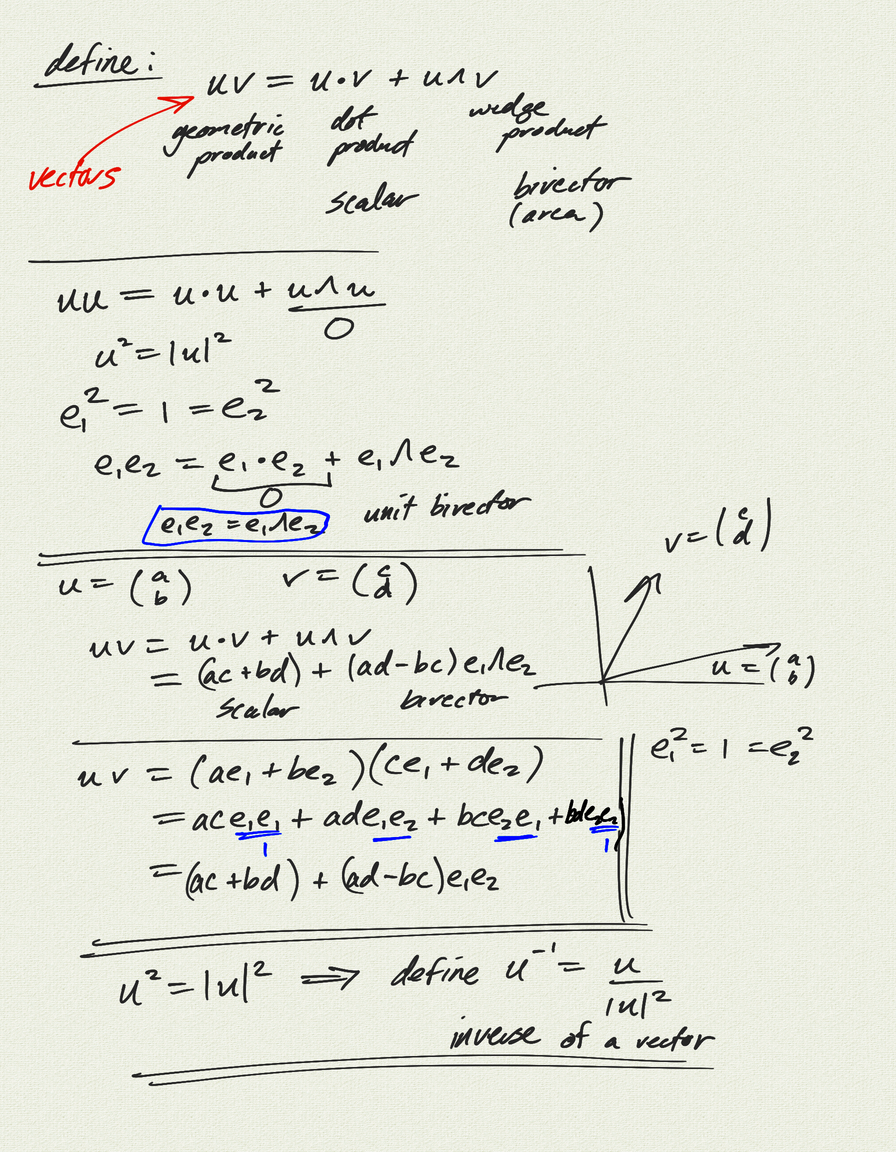 define:
uv = u·v + u∧v
vectors
geometric product
dot product
wedge product
scalar
bivector (area)
uu = u·u + u∧u
0
u² = |u|²
e₁² = 1 = e₂²
e₁e₂ = e₁·e₂ + e₁∧e₂
0
e₁e₂ = e₁∧e₂
unit bivector
u = (a b)
v = (c d)
uv = u·v + u∧v
= (ac+bd) + (ad-bc)e₁∧e₂
scalar
bivector
v = (c d)
u = (a b)
uv = (ae₁ + be₂)(ce₁ + de₂)
= ace₁e₁ + ade₁e₂ + bce₂e₁ + bde₂e₂
1
1
= (ac+bd) + (ad-bc)e₁e₂
e₁² = 1 = e₂²
u² = |u|² ⟹ define u⁻¹ = u / |u|²
inverse of a vector